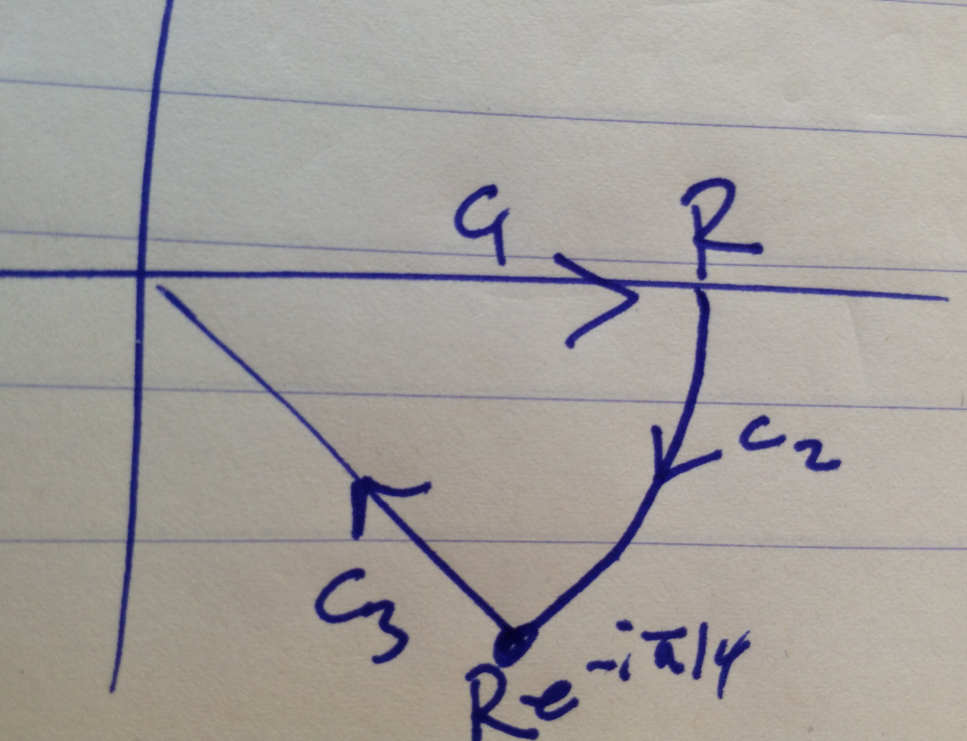 C₁ R
C₂
C₃
Re^{-iπ/4}